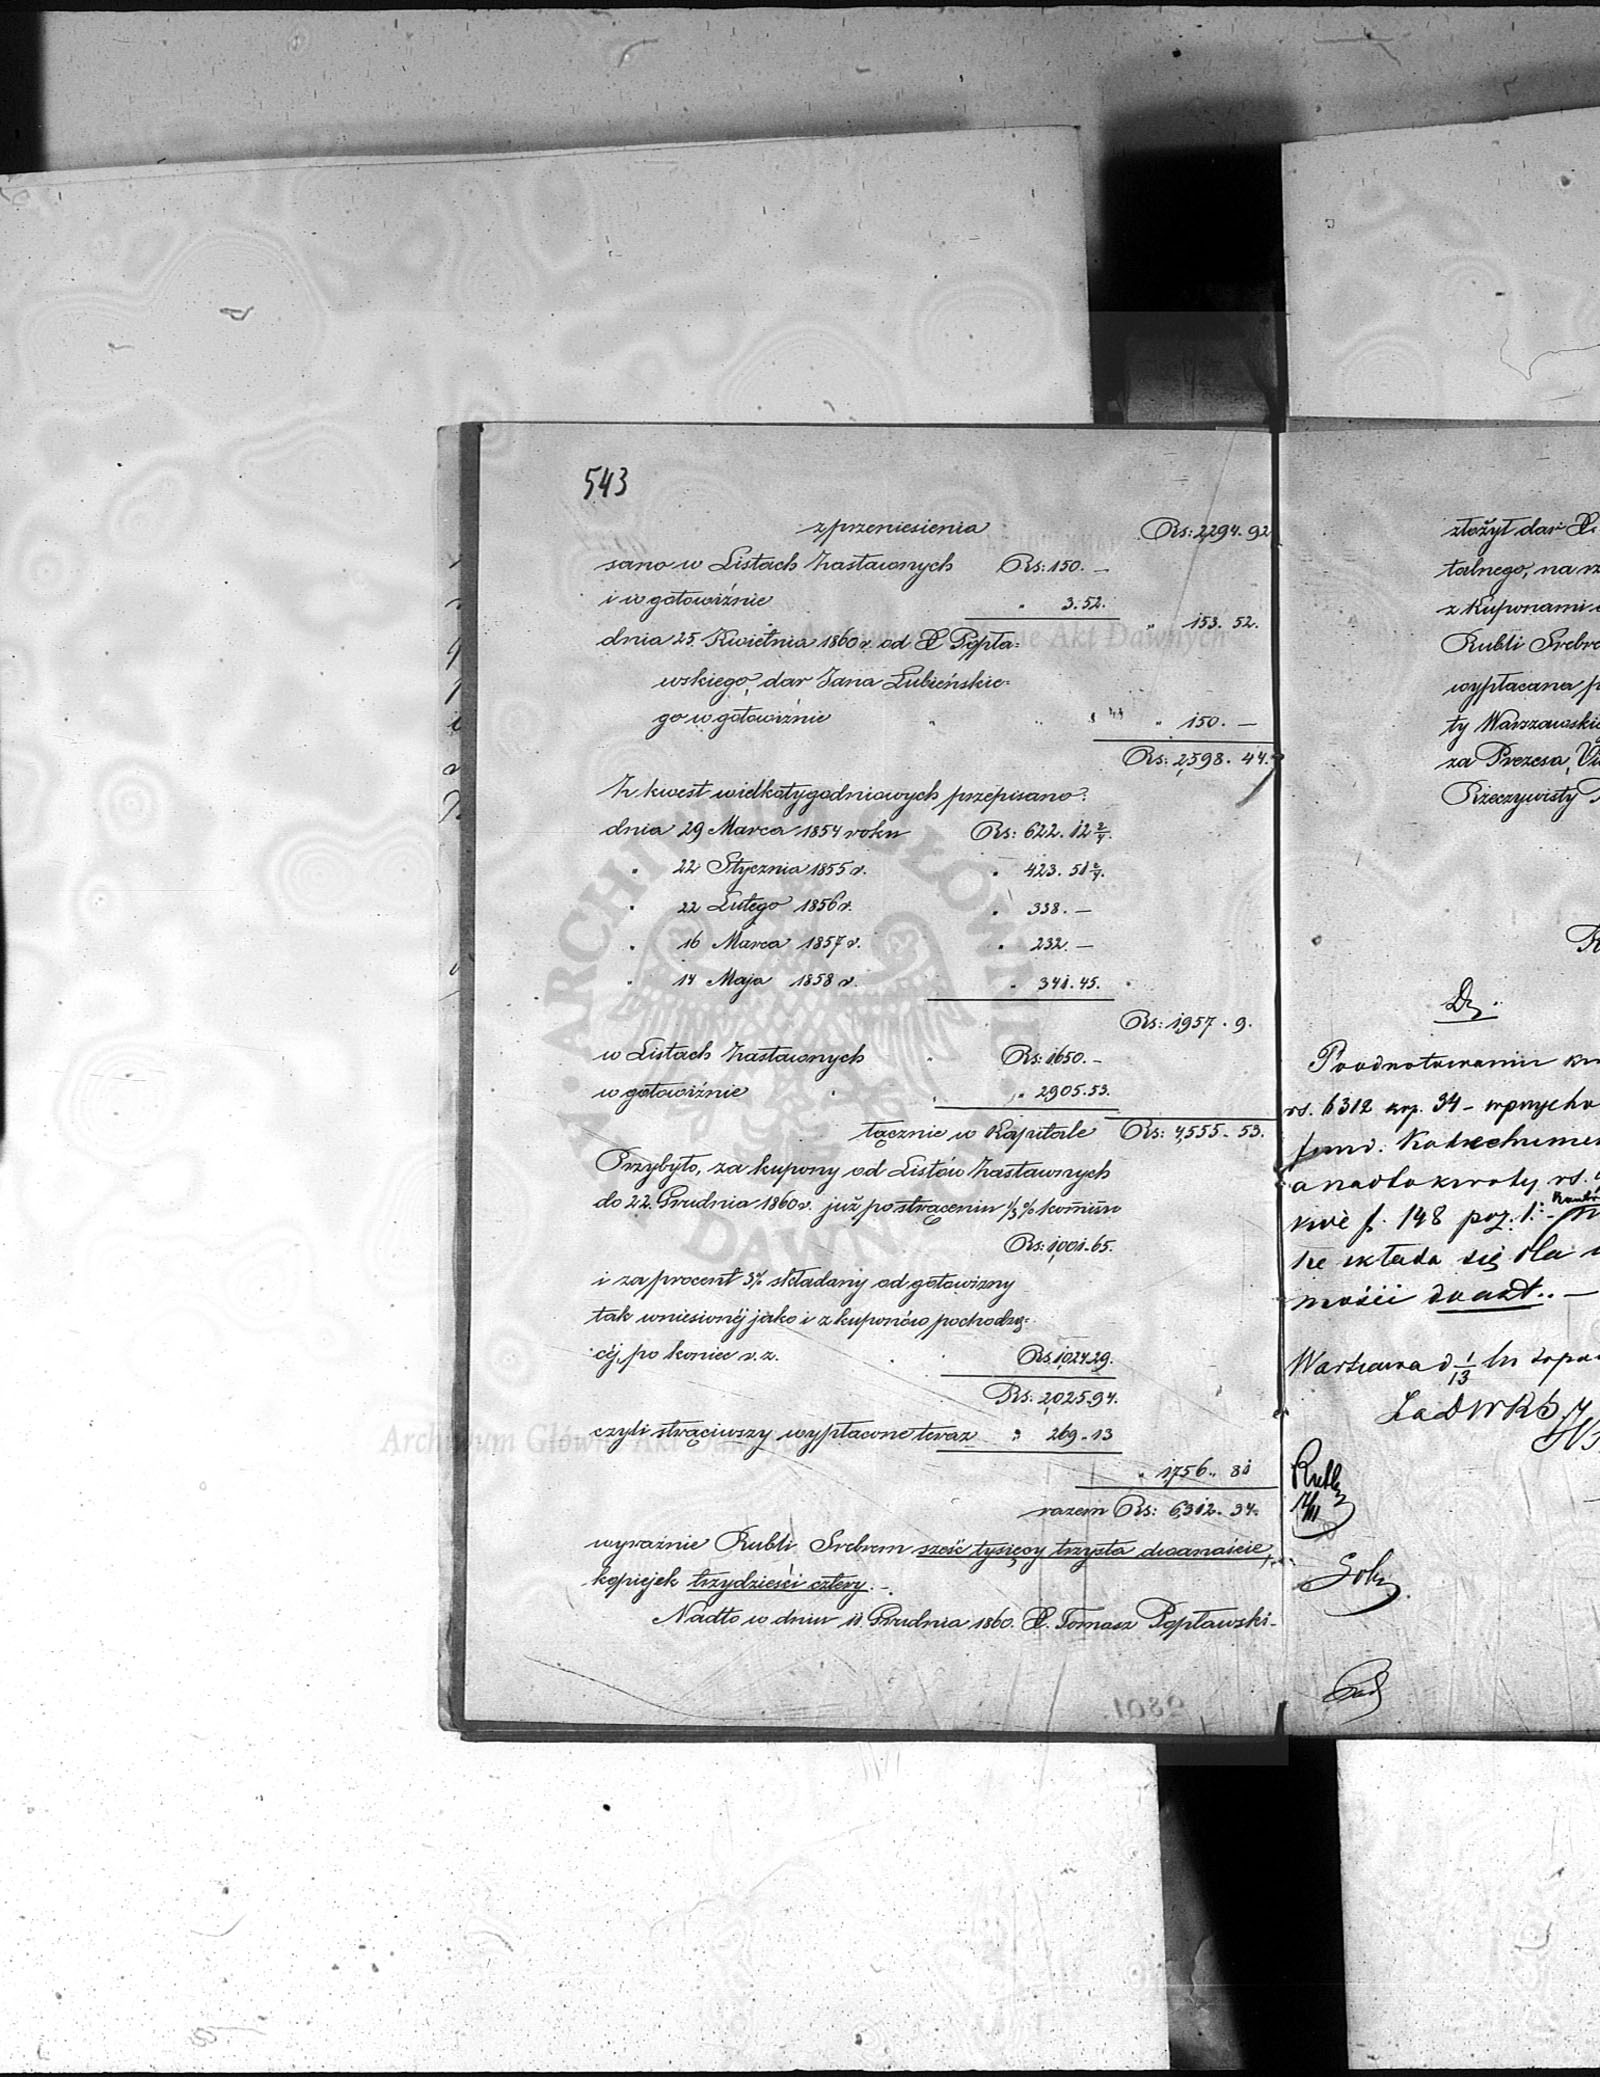 543
z przeniesienia Rs: 2,294. 92
sano w Listach Zastawnych Rs: 150. —
i w gotowiźnie " 3. 52.
" 153. 52.
dnia 25 Kwietnia 1860 r. od X Popła=
wskiego, dar Jana Łubieńskie=
go w gotowiźnie " " " 150. —
Rs: 2,598. 44.
Z kwest wielkotygodniowych przepisano:
dnia 29 Marca 1854 roku Rs: 622. 12 2/4.
" 22 Stycznia 1855 r. " 423. 51 2/4.
" 22 Lutego 1856 r. " 338. —
" 16 Marca 1857 r. " 232. —
" 14 Maja 1858 r. " 341. 45.
Rs: 1,957. 9.
w Listach Zastawnych " Rs: 1650. —
w gotowiźnie " " 2905. 53.
łącznie w Kapitale Rs: 4,555. 53.
Przybyło, za kupony od Listów Zastawnych
do 22. Grudnia 1860 r. już po strąceniu 1/3 % komisu
Rs: 1,001. 65.
i za procent 3% składany od gotowizny
tak wniesionéj jako i z kuponów pochodzą=
céj, po koniec r. z. Rs. 1,024 29.
Rs: 2,025. 94.
czyli strąciwszy wypłacone teraz " 269. 13
" 1,756. 81
razem Rs: 6,312. 34.
wyraźnie Rubli Srebrem sześć tysięcy trzysta dwanaście,
kopiejek trzydzieści cztery. —
Nadto w dniu 11 Grudnia 1860. X. Tomasz Popławski
złożył dar X.
talnego, na
z kuponami
Rubli Srebr
wypłacana p
ty Warszawski
za Prezesa,
Rzeczywisty
Po odnotowaniu
rs. 6312 kop. 34 –
fund. Katechumen
a nadto kwoty rs.
148 poz. 1.
składa się dla
mości do akt. —
Warszawa d 1/13
ARCHIWUM GŁÓWNE AKT DAWNYCH
Archiwum Główne Akt Dawnych
Archiwum Główne Akt Dawnych